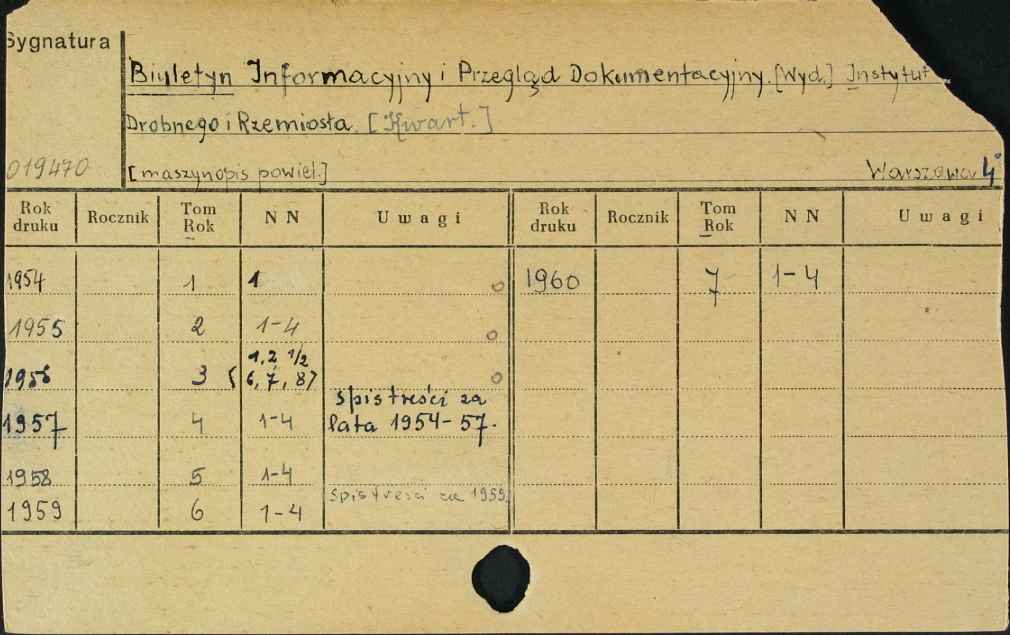 Sygnatura
Biuletyn Informacyjny i Przegląd Dokumentacyjny. [Wyd.] Instytut
Drobnego i Rzemiosła. [Kwart.]
019470 [maszynopis powiel.] Warszawa
Rok druku Rocznik Tom Rok N N Uwagi Rok druku Rocznik Tom Rok N N Uwagi
1954 1 1 o 1960 7 1-4
1955 2 1-4 o
1956 3 (1,2 1/2 6,7,8) o
1957 4 1-4 spis treści za lata 1954-57.
1958 5 1-4
1959 6 1-4 spis treści za 1959.